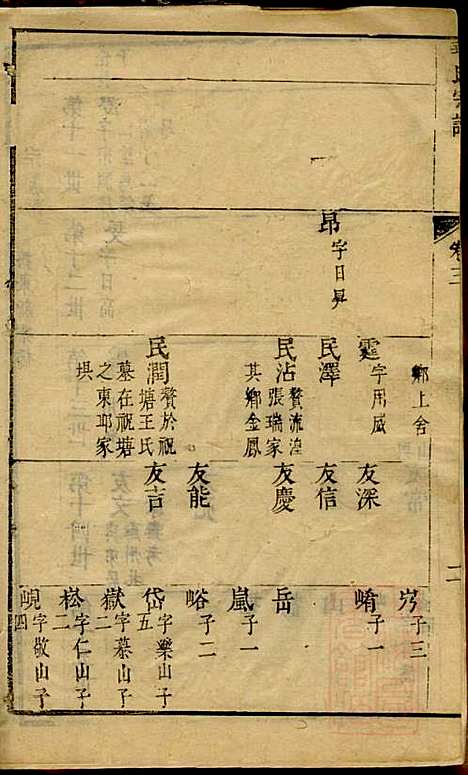 氏宗譜
卷三
二
鄉上舍
昂字日昇
霆字用威
民澤
民沾贅流湟
張瑞家
其鄉金鳳
民潤贅於祝
塘王氏
墓在祝塘
之東邛家
埧
友深
友信
友慶
友能
友吉
岁子三
崤子一
岳
嵐子一
峪子二
岱字樂山子
五
嶽字慕山子
二
崧字仁山子
二
峴字敬山子
四